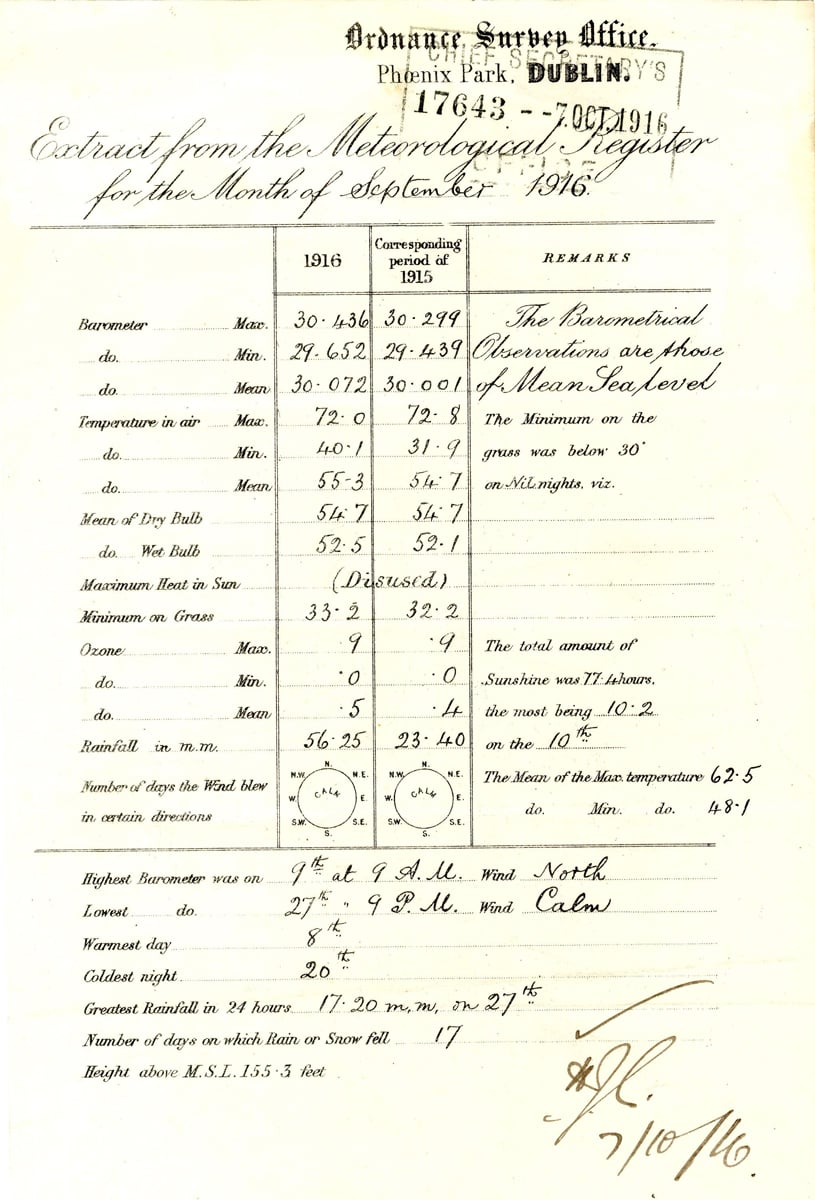 Ordnance Survey Office.
Phœnix Park, DUBLIN.
CHIEF SECRETARY'S
17643 --7.OCT.1916
OFFICE
Extract from the Meteorological Register
for the Month of September 1916.
1916 Corresponding period of 1915 REMARKS
Barometer Max. 30.436 30.299 The Barometrical
do. Min. 29.652 29.439 Observations are those
do. Mean 30.072 30.001 of Mean Sea Level
Temperature in air Max. 72.0 72.8 The Minimum on the
do. Min. 40.1 31.9 grass was below 30°
do. Mean 55-3 54.7 on Nil nights, viz.
Mean of Dry Bulb 54.7 54.7
do. Wet Bulb 52.5 52.1
Maximum Heat in Sun (Disused)
Minimum on Grass 33.2 32.2
Ozone Max. 9 .9 The total amount of
do. Min. .0 .0 Sunshine was 77.4 hours,
do. Mean .5 .4 the most being 10.2
Rainfall in m.m. 56.25 23.40 on the 10th
Number of days the Wind blew in certain directions
N. N.E. E. S.E. S. S.W. W. N.W. CALM
N. N.E. E. S.E. S. S.W. W. N.W. CALM
The Mean of the Max. temperature 62.5
do. Min. do. 48.1
Highest Barometer was on 9th at 9 A.M. Wind North
Lowest do. 27th " 9 P.M. Wind Calm
Warmest day 8th
Coldest night 20th
Greatest Rainfall in 24 hours 17.20 m.m, on 27th
Number of days on which Rain or Snow fell 17
Height above M.S.L. 155.3 feet
7/10/16.